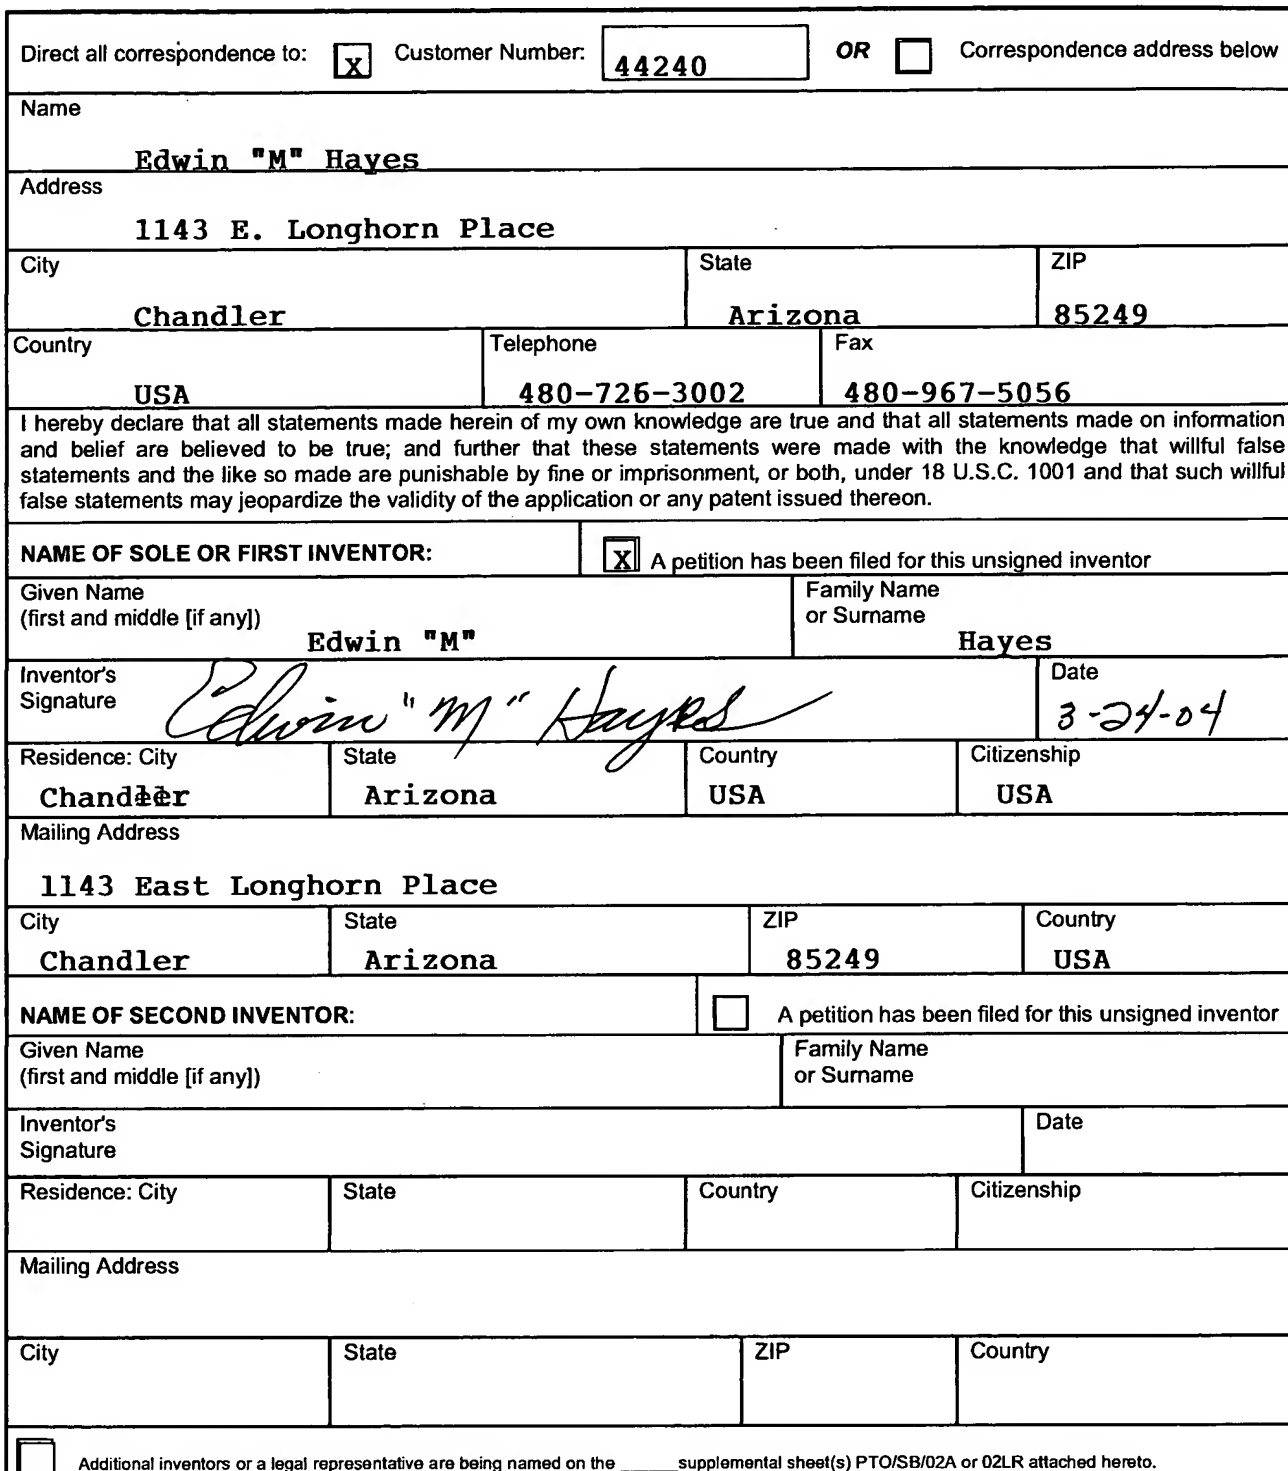 Direct all correspondence to: X Customer Number: 44240 OR Correspondence address below
Name
Edwin "M" Hayes
Address
1143 E. Longhorn Place
City State ZIP
Chandler Arizona 85249
Country Telephone Fax
USA 480-726-3002 480-967-5056
I hereby declare that all statements made herein of my own knowledge are true and that all statements made on information
and belief are believed to be true; and further that these statements were made with the knowledge that willful false
statements and the like so made are punishable by fine or imprisonment, or both, under 18 U.S.C. 1001 and that such willful
false statements may jeopardize the validity of the application or any patent issued thereon.
NAME OF SOLE OR FIRST INVENTOR: X A petition has been filed for this unsigned inventor
Given Name Family Name
(first and middle [if any]) or Surname
Edwin "M" Hayes
Inventor's Date
Signature Edwin "M" Hayes 3-24-04
Residence: City State Country Citizenship
Chandler Arizona USA USA
Mailing Address
1143 East Longhorn Place
City State ZIP Country
Chandler Arizona 85249 USA
NAME OF SECOND INVENTOR: A petition has been filed for this unsigned inventor
Given Name Family Name
(first and middle [if any]) or Surname
Inventor's Date
Signature
Residence: City State Country Citizenship
Mailing Address
City State ZIP Country
Additional inventors or a legal representative are being named on the ______supplemental sheet(s) PTO/SB/02A or 02LR attached hereto.